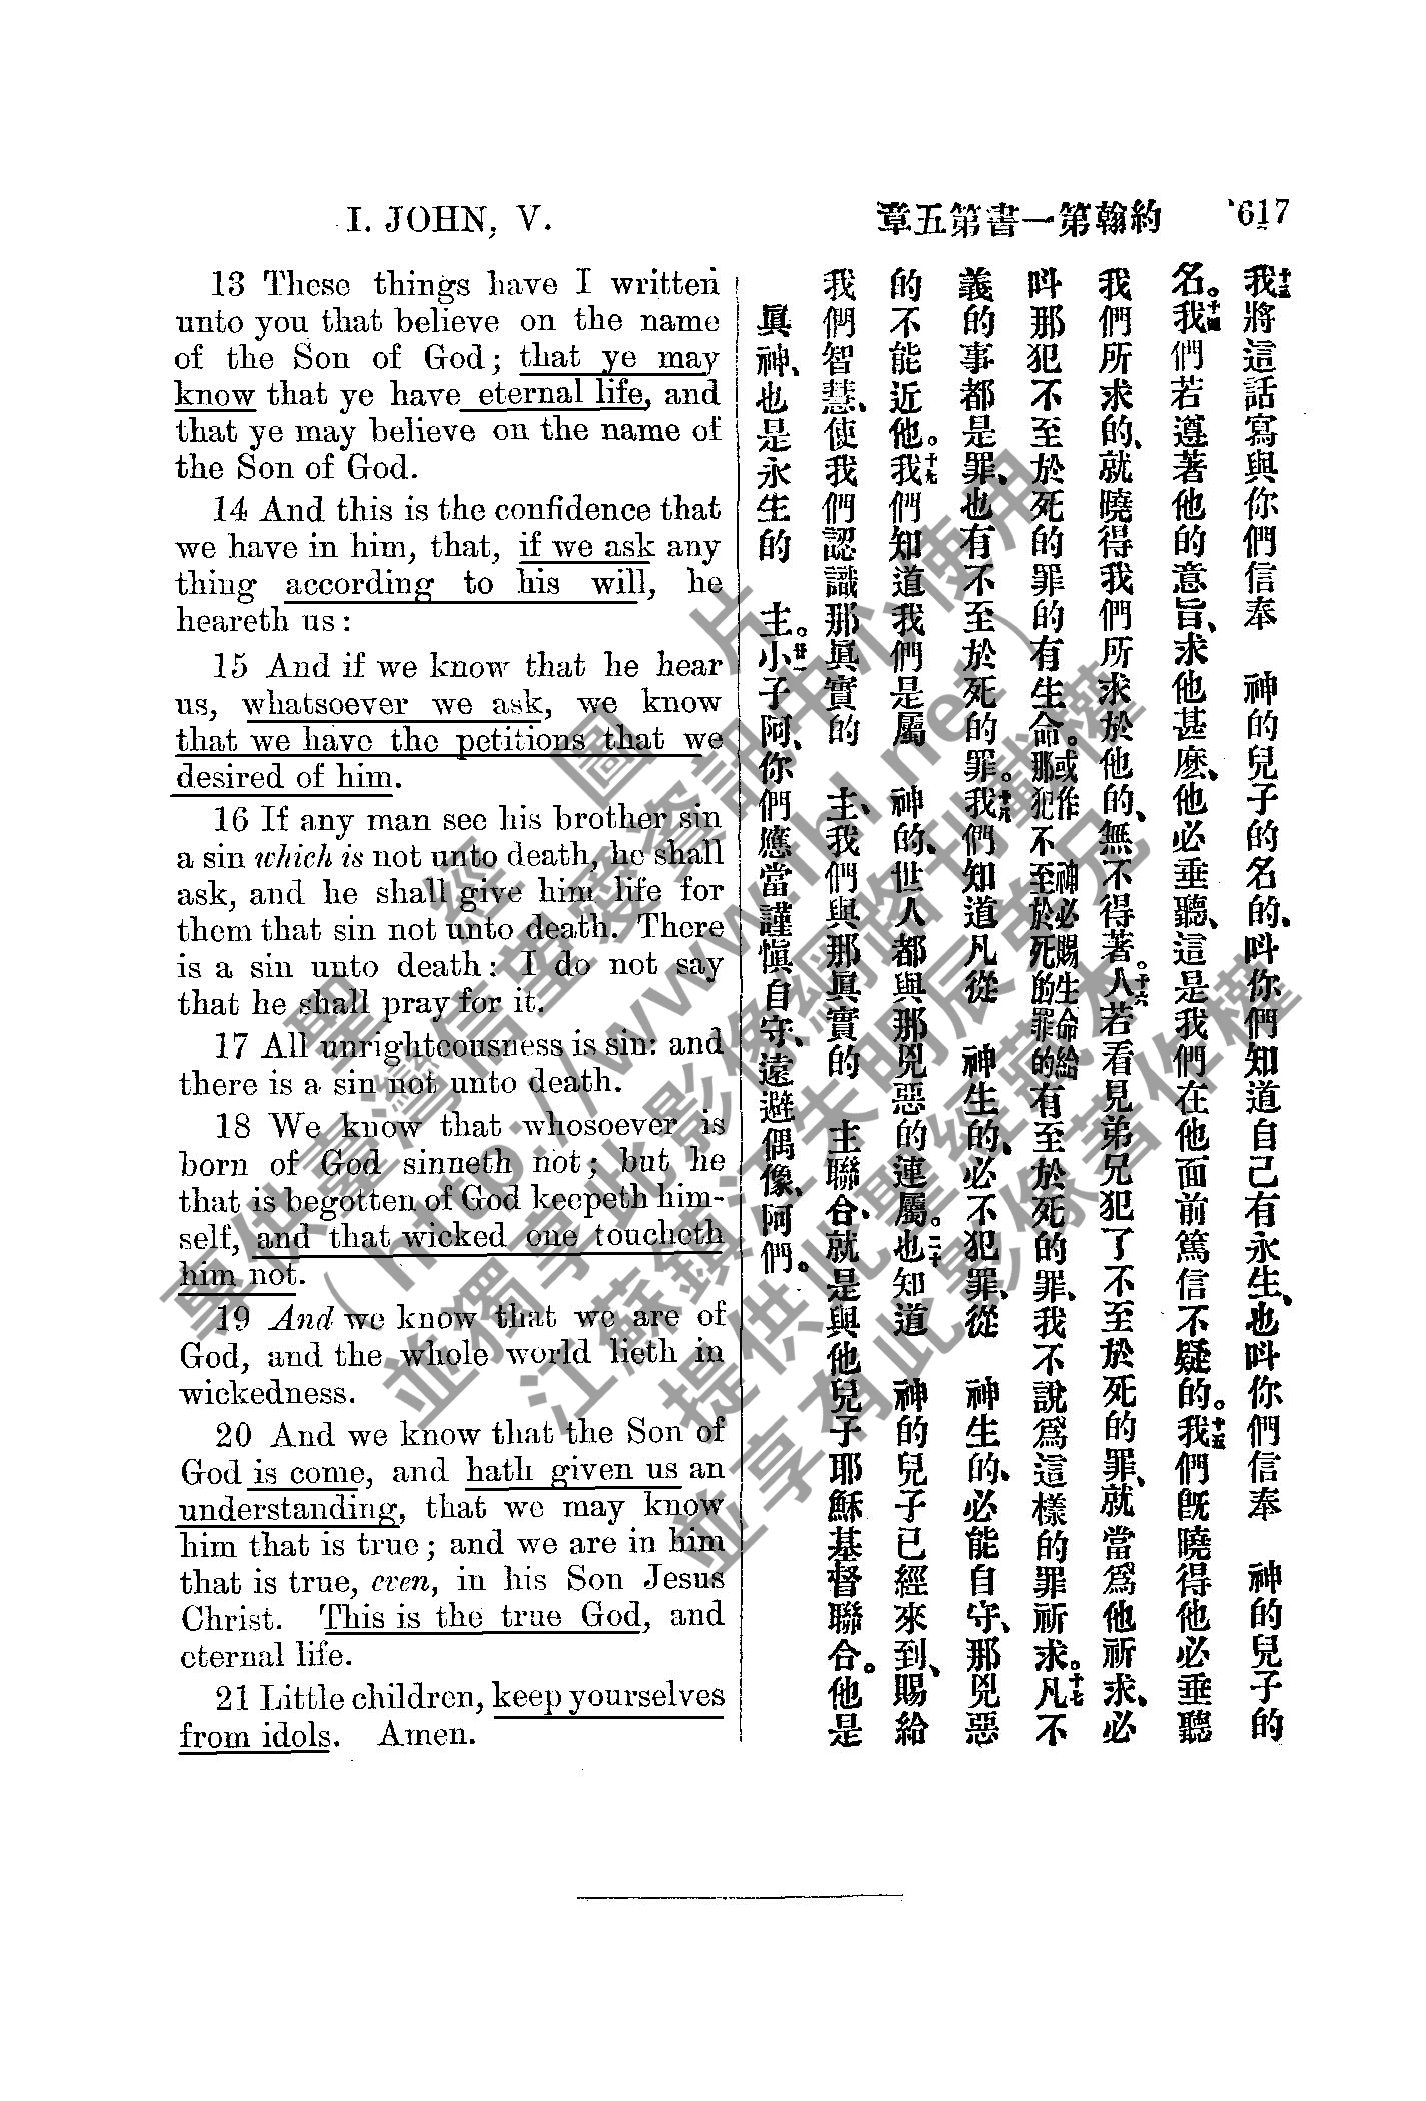 I. JOHN, V.
章五第書一第翰約
617
13 These things have I written
unto you that believe on the name
of the Son of God; that ye may
know that ye have eternal life, and
that ye may believe on the name of
the Son of God.
14 And this is the confidence that
we have in him, that, if we ask any
thing according to his will, he
heareth us:
15 And if we know that he hear
us, whatsoever we ask, we know
that we have the petitions that we
desired of him.
16 If any man see his brother sin
a sin which is not unto death, he shall
ask, and he shall give him life for
them that sin not unto death. There
is a sin unto death: I do not say
that he shall pray for it.
17 All unrighteousness is sin: and
there is a sin not unto death.
18 We know that whosoever is
born of God sinneth not; but he
that is begotten of God keepeth him-
self, and that wicked one toucheth
him not.
19 And we know that we are of
God, and the whole world lieth in
wickedness.
20 And we know that the Son of
God is come, and hath given us an
understanding, that we may know
him that is true; and we are in him
that is true, even, in his Son Jesus
Christ. This is the true God, and
eternal life.
21 Little children, keep yourselves
from idols. Amen.
十三我將這話寫與你們信奉 神的兒子的名的、呌你們知道自己有永生、也呌你們信奉 神的兒子的
名。十四我們若遵著他的意旨、求他甚麽、他必垂聽、這是我們在他面前篤信不疑的。十五我們旣曉得他必垂聽
我們所求的、就曉得我們所求於他的、無不得著。十六人若看見弟兄犯了不至於死的罪、就當爲他祈求、必
呌那犯不至於死的罪的有生命。或作神必賜生命給那犯不至於死的罪的有至於死的罪、我不說爲這樣的罪祈求。十七凡不
義的事都是罪、也有不至於死的罪。十八我們知道凡從 神生的、必不犯罪、從 神生的、必能自守、那兇惡
的不能近他。十九我們知道我們是屬 神的、世人都與那兇惡的連屬。二十也知道 神的兒子已經來到、賜給
我們智慧、使我們認識那眞實的 主、我們與那眞實的 主聯合、就是與他兒子耶穌基督聯合。他是
眞神、也是永生的 主。廿一小子阿、你們應當謹愼自守、遠避偶像、阿們。
聖經圖片
享供臺灣信望愛資訊中心使用
(http://www.fhl.net)
並獨享此影像網路刊載權
江蘇鎮江朱明辰弟兄
提供此聖經藏本
並享有此影像著作權